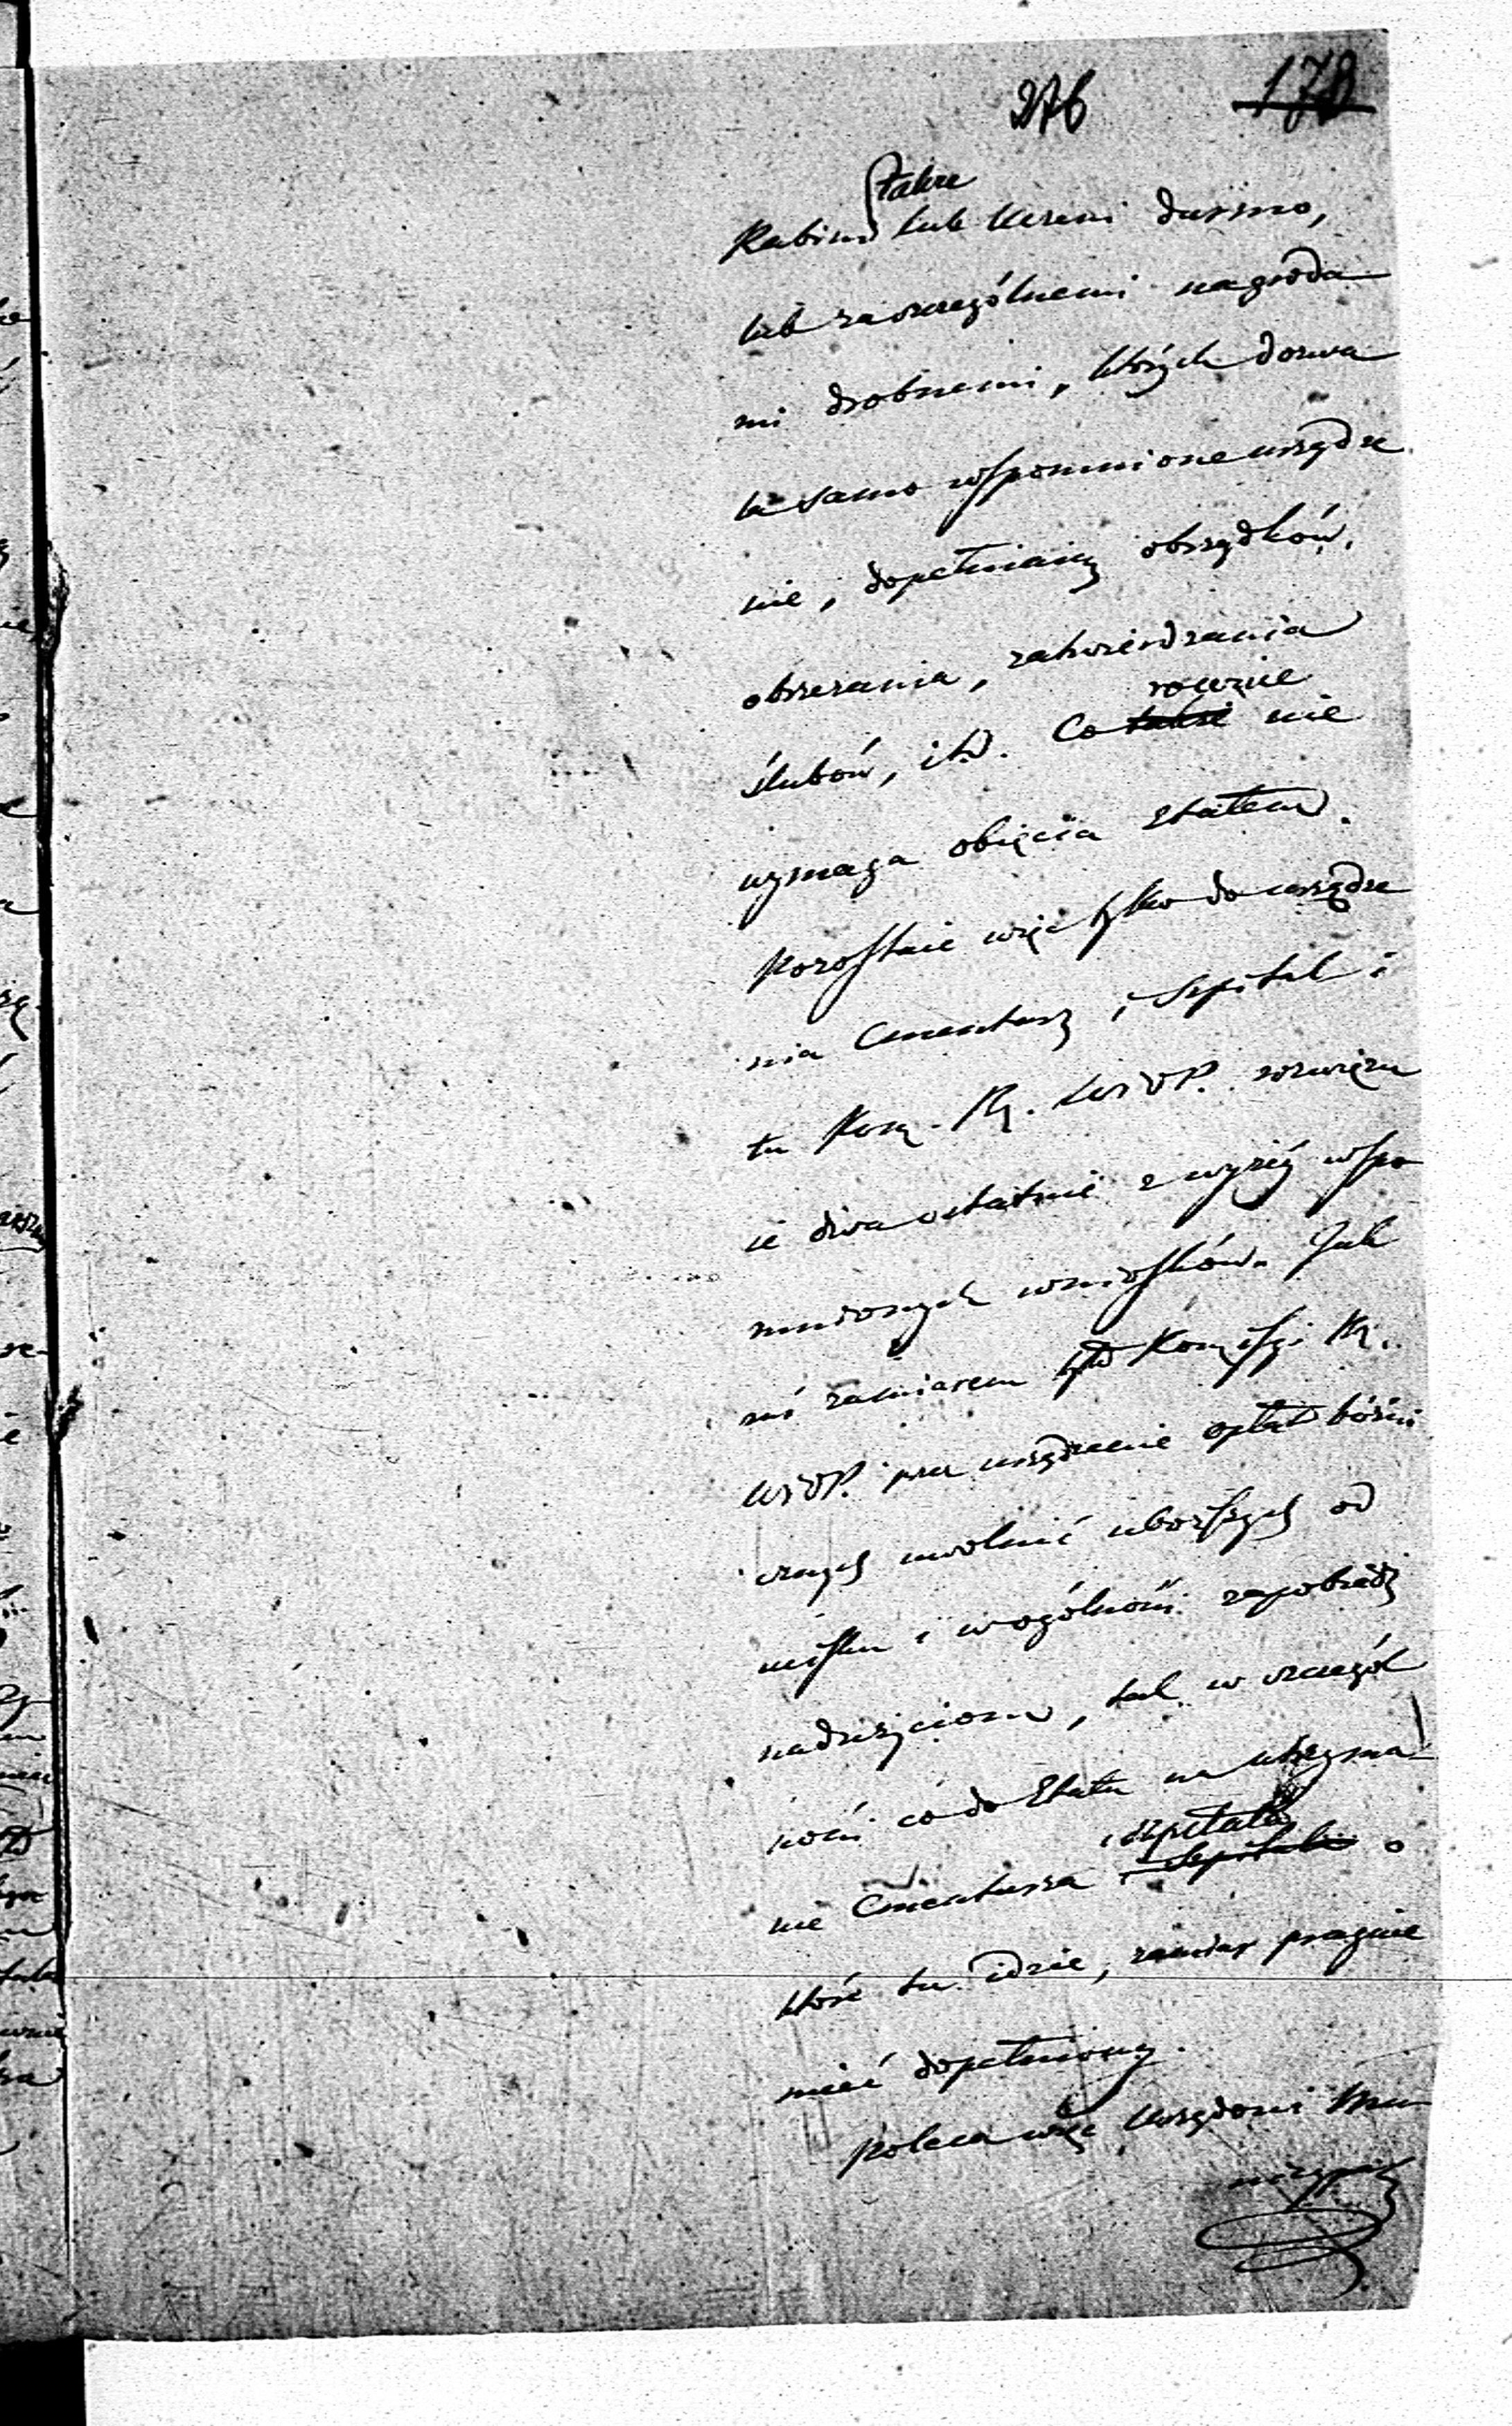 276 178
także
Rabin lub uczeni darmo,
lub za szczególnemi nagroda
mi drobnemi, których dozwa
la samo wspomnione urządze
nie, dopełniają obrządków,
obrzezania, zatwierdzania
rownie
ślubów, itd. Co także nie
wymaga obięcia Etatem.
Pozostaie więc tylko do urządze
nia Cmentarz, Szpital i
tu Kom. Rz. WRiOP. rozwięzu
ie dwa ostatnie z wyżéj wspo
mnionych wniosków. Jak
zamiarem był Kommissyi Rz.
WRiOP. przez urządzenie opłat bóżni
cznych uwolnić uboższych od
ucisku i w ogólności zapobiedz
nadużyciom, tak w szczegól
ności co do Etatu na utrzyma
i szpitala
nie Cmentarza i Szpitala o
które tu idzie, zamiar pragnie
mieć dopełniony.
Poleca więc Urzędowi Mu
nicypal